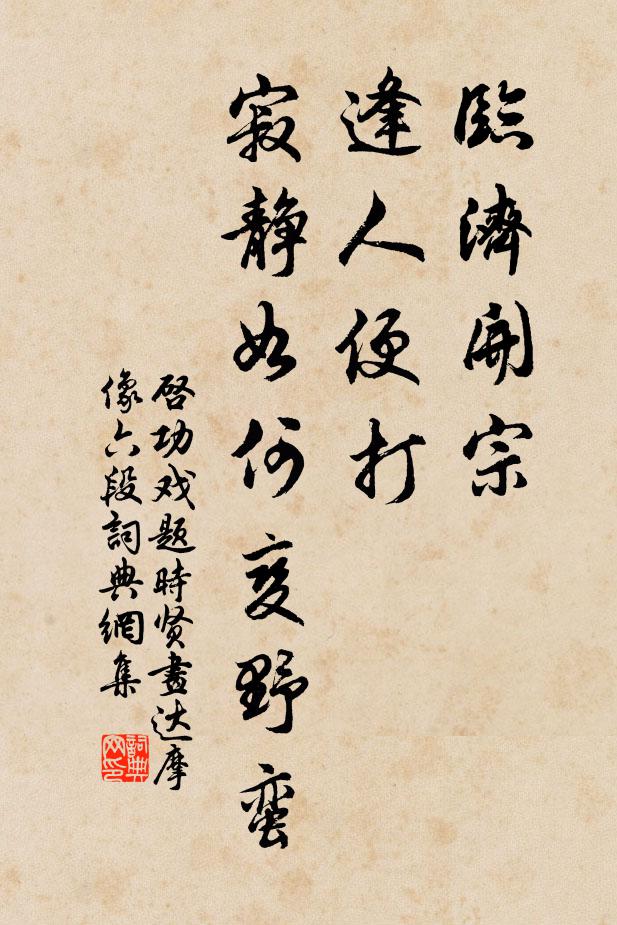 臨濟開宗
逢人便打
寂静如何变野蛮
启功戏题時贤畫达摩
像六段詞典網集
詞典
网印